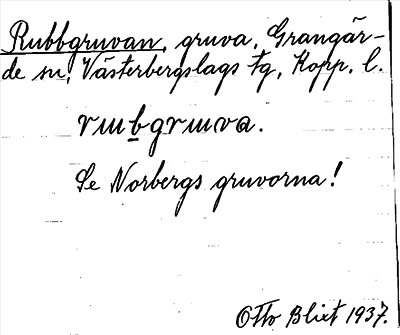 Rubbgruvan, gruva, Grangär-
de sn, Västerbergslags tg, Kopp. l.
Se Norbergs gruvorna!
Otto Blixt 1937.